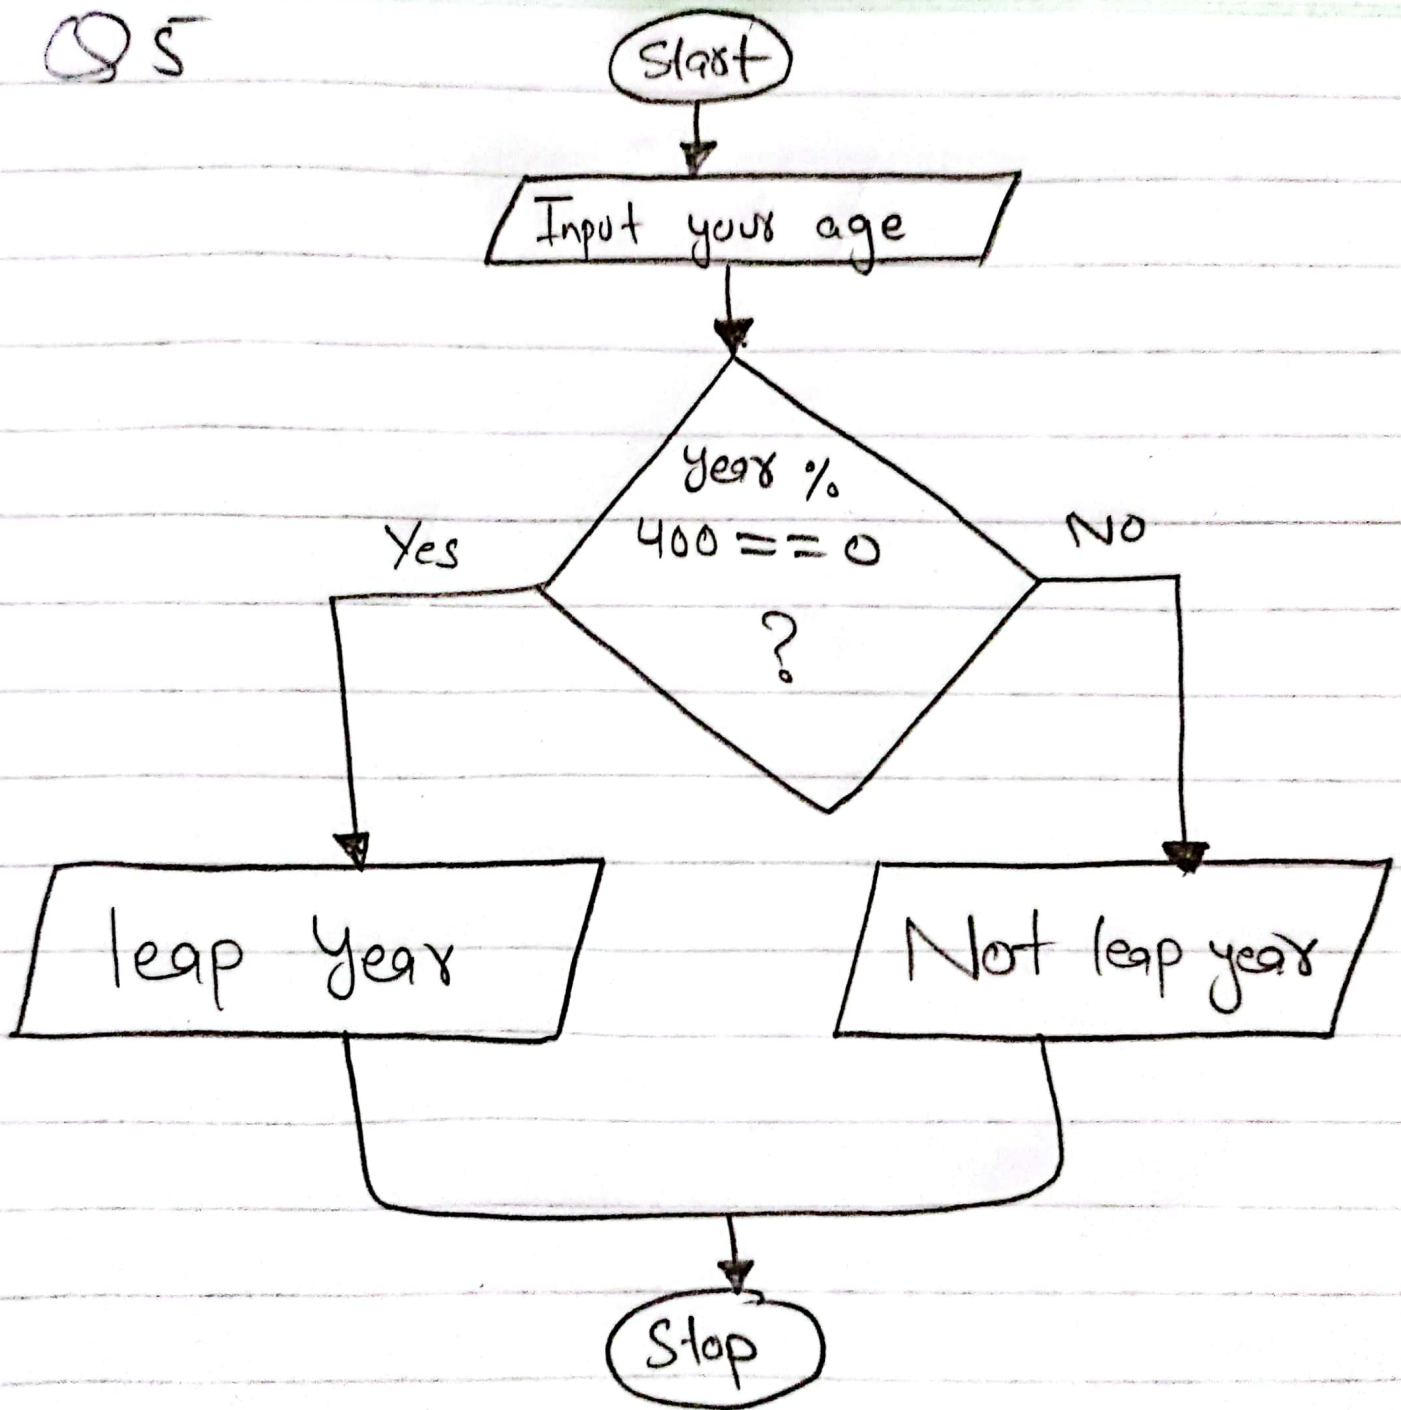 Q 5
Start
Input your age
Year %
400 == 0
?
Yes
NO
leap Year
Not leap year
Stop